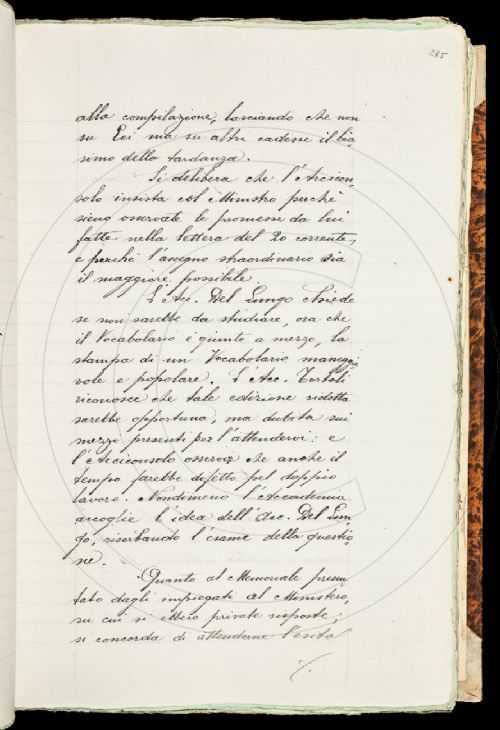 235
alla compilazione, lasciando che non
su Lei ma su altri cadesse il bia-
simo della tardanza.
Si delibera che l'Arcicon-
solo insista col Ministro perchè
sieno osservate le promesse da lui
fatte nella lettera del 20 corrente,
e perchè l'assegno straordinario sia
il maggiore possibile.
L'Acc. Del Lungo chiede
se non sarebbe da studiare, ora che
il Vocabolario è giunto a mezzo, la
stampa di un Vocabolario maneg-
vole e popolare. L'Acc. Tortoli
riconosce che tale edizione ridotta
sarebbe opportuna, ma dubita sui
mezzi presenti per l'attendervi: e
l'Arciconsolo osserva che anche il
tempo farebbe difetto pel doppio
lavoro. Nondimeno l'Accademia
accoglie l'idea dell'Acc. Del Lun-
go, riserbando l'esame della questio-
ne.
Quanto al Memoriale presen-
tato dagli impiegati al Ministero,
su cui si ebbero private risposte,
si concorda di attenderne l'esito